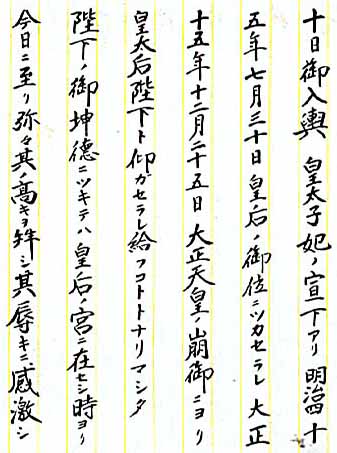 十日御入輿 皇太子妃ノ宣下アリ 明治四十
五年七月三十日皇后ノ御位ニツカセラレ 大正
十五年十二月二十五日 大正天皇ノ崩御ニヨリ
皇太后陛下ト仰ガセラレ給フコトトナリマシタ
陛下ノ御坤徳ニツキテハ皇后ノ宮ニ在セシ時ヨリ
今日ニ至リ弥々其ノ高キヲ拝シ其辱キニ感激シ